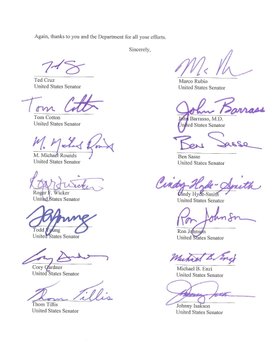 Again, thanks to you and the Department for all your efforts.
Sincerely,
Ted Cruz
United States Senator
Marco Rubio
United States Senator
Tom Cotton
Tom Cotton
United States Senator
John Barrasso
John Barrasso, M.D.
United States Senator
M. Michael Rounds
M. Michael Rounds
United States Senator
Ben Sasse
Ben Sasse
United States Senator
Roger Wicker
Roger F. Wicker
United States Senator
Cindy Hyde-Smith
Cindy Hyde-Smith
United States Senator
Todd Young
United States Senator
Ron Johnson
Ron Johnson
United States Senator
Cory Gardner
United States Senator
Michael B. Enzi
Michael B. Enzi
United States Senator
Thom Tillis
Thom Tillis
United States Senator
Johnny Isakson
United States Senator